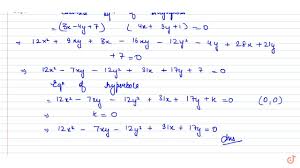 = (3x-4y+7) (4x+3y+1) = 0
⇒ 12x² + 9xy + 3x - 16xy - 12y² - 4y + 28x + 21y
+7 = 0
⇒ 12x² - 7xy - 12y² + 31x + 17y + 7 = 0
Eqⁿ of hyperbola
= 12x² - 7xy - 12y² + 31x + 17y + k = 0 (0,0)
⇒ k = 0
⇒ 12x² - 7xy - 12y² + 31x + 17y = 0
Ans